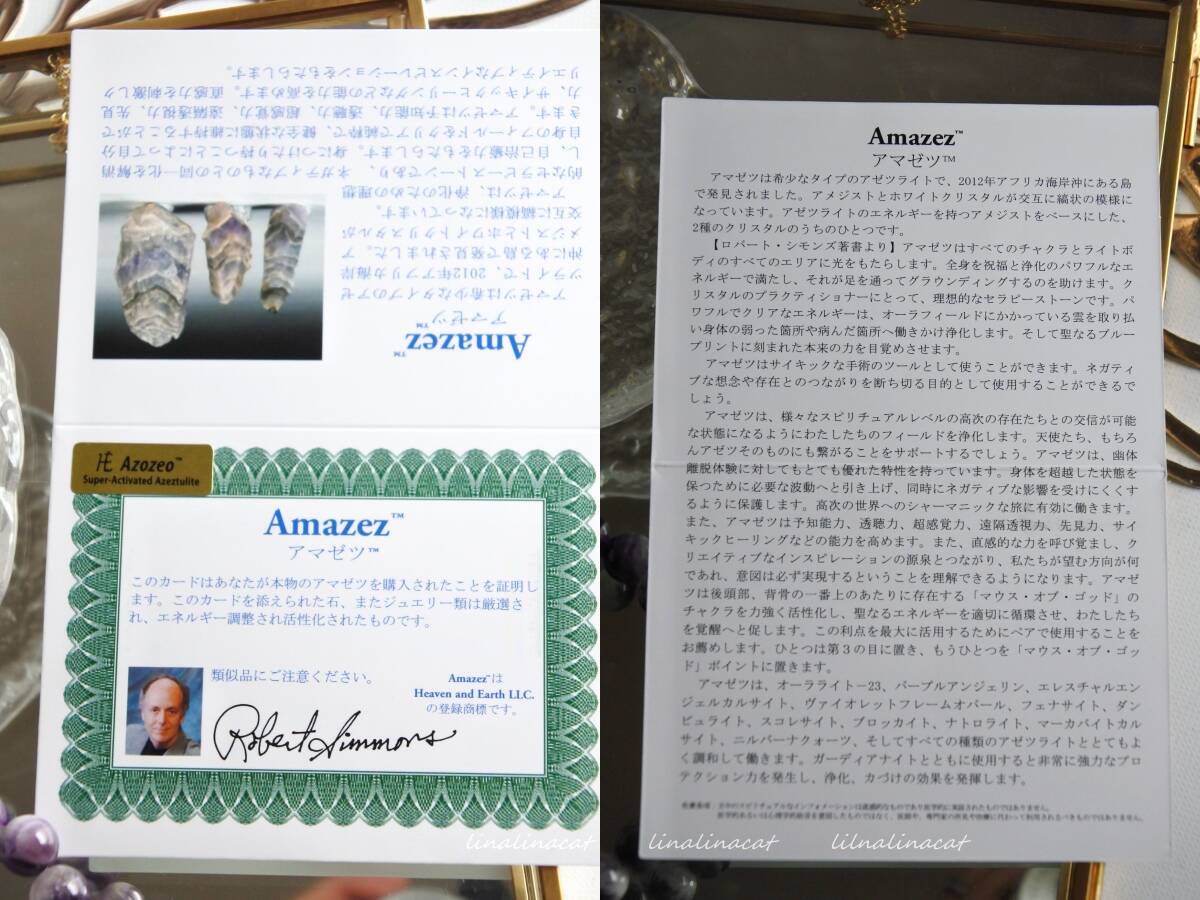 Amazez™
アマゼツ™
アマゼツは希少なタイプのアゼ
ツライトで、2012年アフリカ海岸
沖にある島で発見されました。ア
メジストとホワイトクリスタルが
交互に縞模様になっています。
アマゼツは、浄化のための理想
的なセラピーストーンであり、ネガティブなものとの同一化を解消
し、自己治癒力をもたらします。身につけたり持つことによって自分
自身のフィールドをクリアで純粋で、健全な状態に維持することがで
きます。アマゼツは予知能力、透聴力、超感覚力、遠隔透視力、先見
力、サイキックヒーリングなどの能力を高めます。直感力を刺激しク
リエイティブなインスピレーションをもたらします。
HE Azozeo™
Super-Activated Azeztulite
Amazez™
アマゼツ™
このカードはあなたが本物のアマゼツを購入されたことを証明し
ます。このカードを添えられた石、またジュエリー類は厳選さ
れ、エネルギー調整され活性化されたものです。
類似品にご注意ください。
Amazez™は
Heaven and Earth LLC.
の登録商標です。
Robert Simmons
linalinacat
Amazez™
アマゼツ™
アマゼツは希少なタイプのアゼツライトで、2012年アフリカ海岸沖にある島
で発見されました。アメジストとホワイトクリスタルが交互に縞状の模様に
なっています。アゼツライトのエネルギーを持つアメジストをベースにした、
2種のクリスタルのうちのひとつです。
【ロバート・シモンズ著書より】アマゼツはすべてのチャクラとライトボ
ディのすべてのエリアに光をもたらします。全身を祝福と浄化のパワフルなエ
ネルギーで満たし、それが足を通ってグラウンディングするのを助けます。ク
リスタルのプラクティショナーにとって、理想的なセラピーストーンです。パ
ワフルでクリアなエネルギーは、オーラフィールドにかかっている雲を取り払
い身体の弱った箇所や病んだ箇所へ働きかけ浄化します。そして聖なるブルー
プリントに刻まれた本来の力を目覚めさせます。
アマゼツはサイキックな手術のツールとして使うことができます。ネガティ
ブな想念や存在とのつながりを断ち切る目的として使用することができるでし
ょう。
アマゼツは、様々なスピリチュアルレベルの高次の存在たちとの交信が可能
な状態になるようにわたしたちのフィールドを浄化します。天使たち、もちろ
んアゼツそのものにも繋がることをサポートするでしょう。アマゼツは、幽体
離脱体験に対してもとても優れた特性を持っています。身体を超越した状態を
保つために必要な波動へと引き上げ、同時にネガティブな影響を受けにくくす
るように保護します。高次の世界へのシャーマニックな旅に有効に働きます。
また、アマゼツは予知能力、透聴力、超感覚力、遠隔透視力、先見力、サイ
キックヒーリングなどの能力を高めます。また、直感的な力を呼び覚まし、ク
リエイティブなインスピレーションの源泉とつながり、私たちが望む方向が何
であれ、意図は必ず実現するということを理解できるようになります。アマゼ
ツは後頭部、背骨の一番上のあたりに存在する「マウス・オブ・ゴッド」の
チャクラを力強く活性化し、聖なるエネルギーを適切に循環させ、わたしたち
を覚醒へと促します。この利点を最大に活用するためにペアで使用することを
お薦めします。ひとつは第3の目に置き、もうひとつを「マウス・オブ・ゴッ
ド」ポイントに置きます。
アマゼツは、オーラライトー23、パープルアンジェリン、エレスチャルエン
ジェルカルサイト、ヴァイオレットフレームオパール、フェナサイト、ダン
ビュライト、スコレサイト、ブロッカイト、ナトロライト、マーカバイトカル
サイト、ニルバーナクォーツ、そしてすべての種類のアゼツライトととてもよ
く調和して働きます。ガーディアナイトとともに使用すると非常に強力なプロ
テクション力を発生し、浄化、力づけの効果を発揮します。
免責事項：文中のスピリチュアルなインフォメーションは直感的なものであり医学的に実証されたものではありません。
医学的あるいは心理学的助言を意図したものではなく、医師や、専門家の所見や治療に代わって利用されるべきものではありません。
linalinacat
lilnalinacat